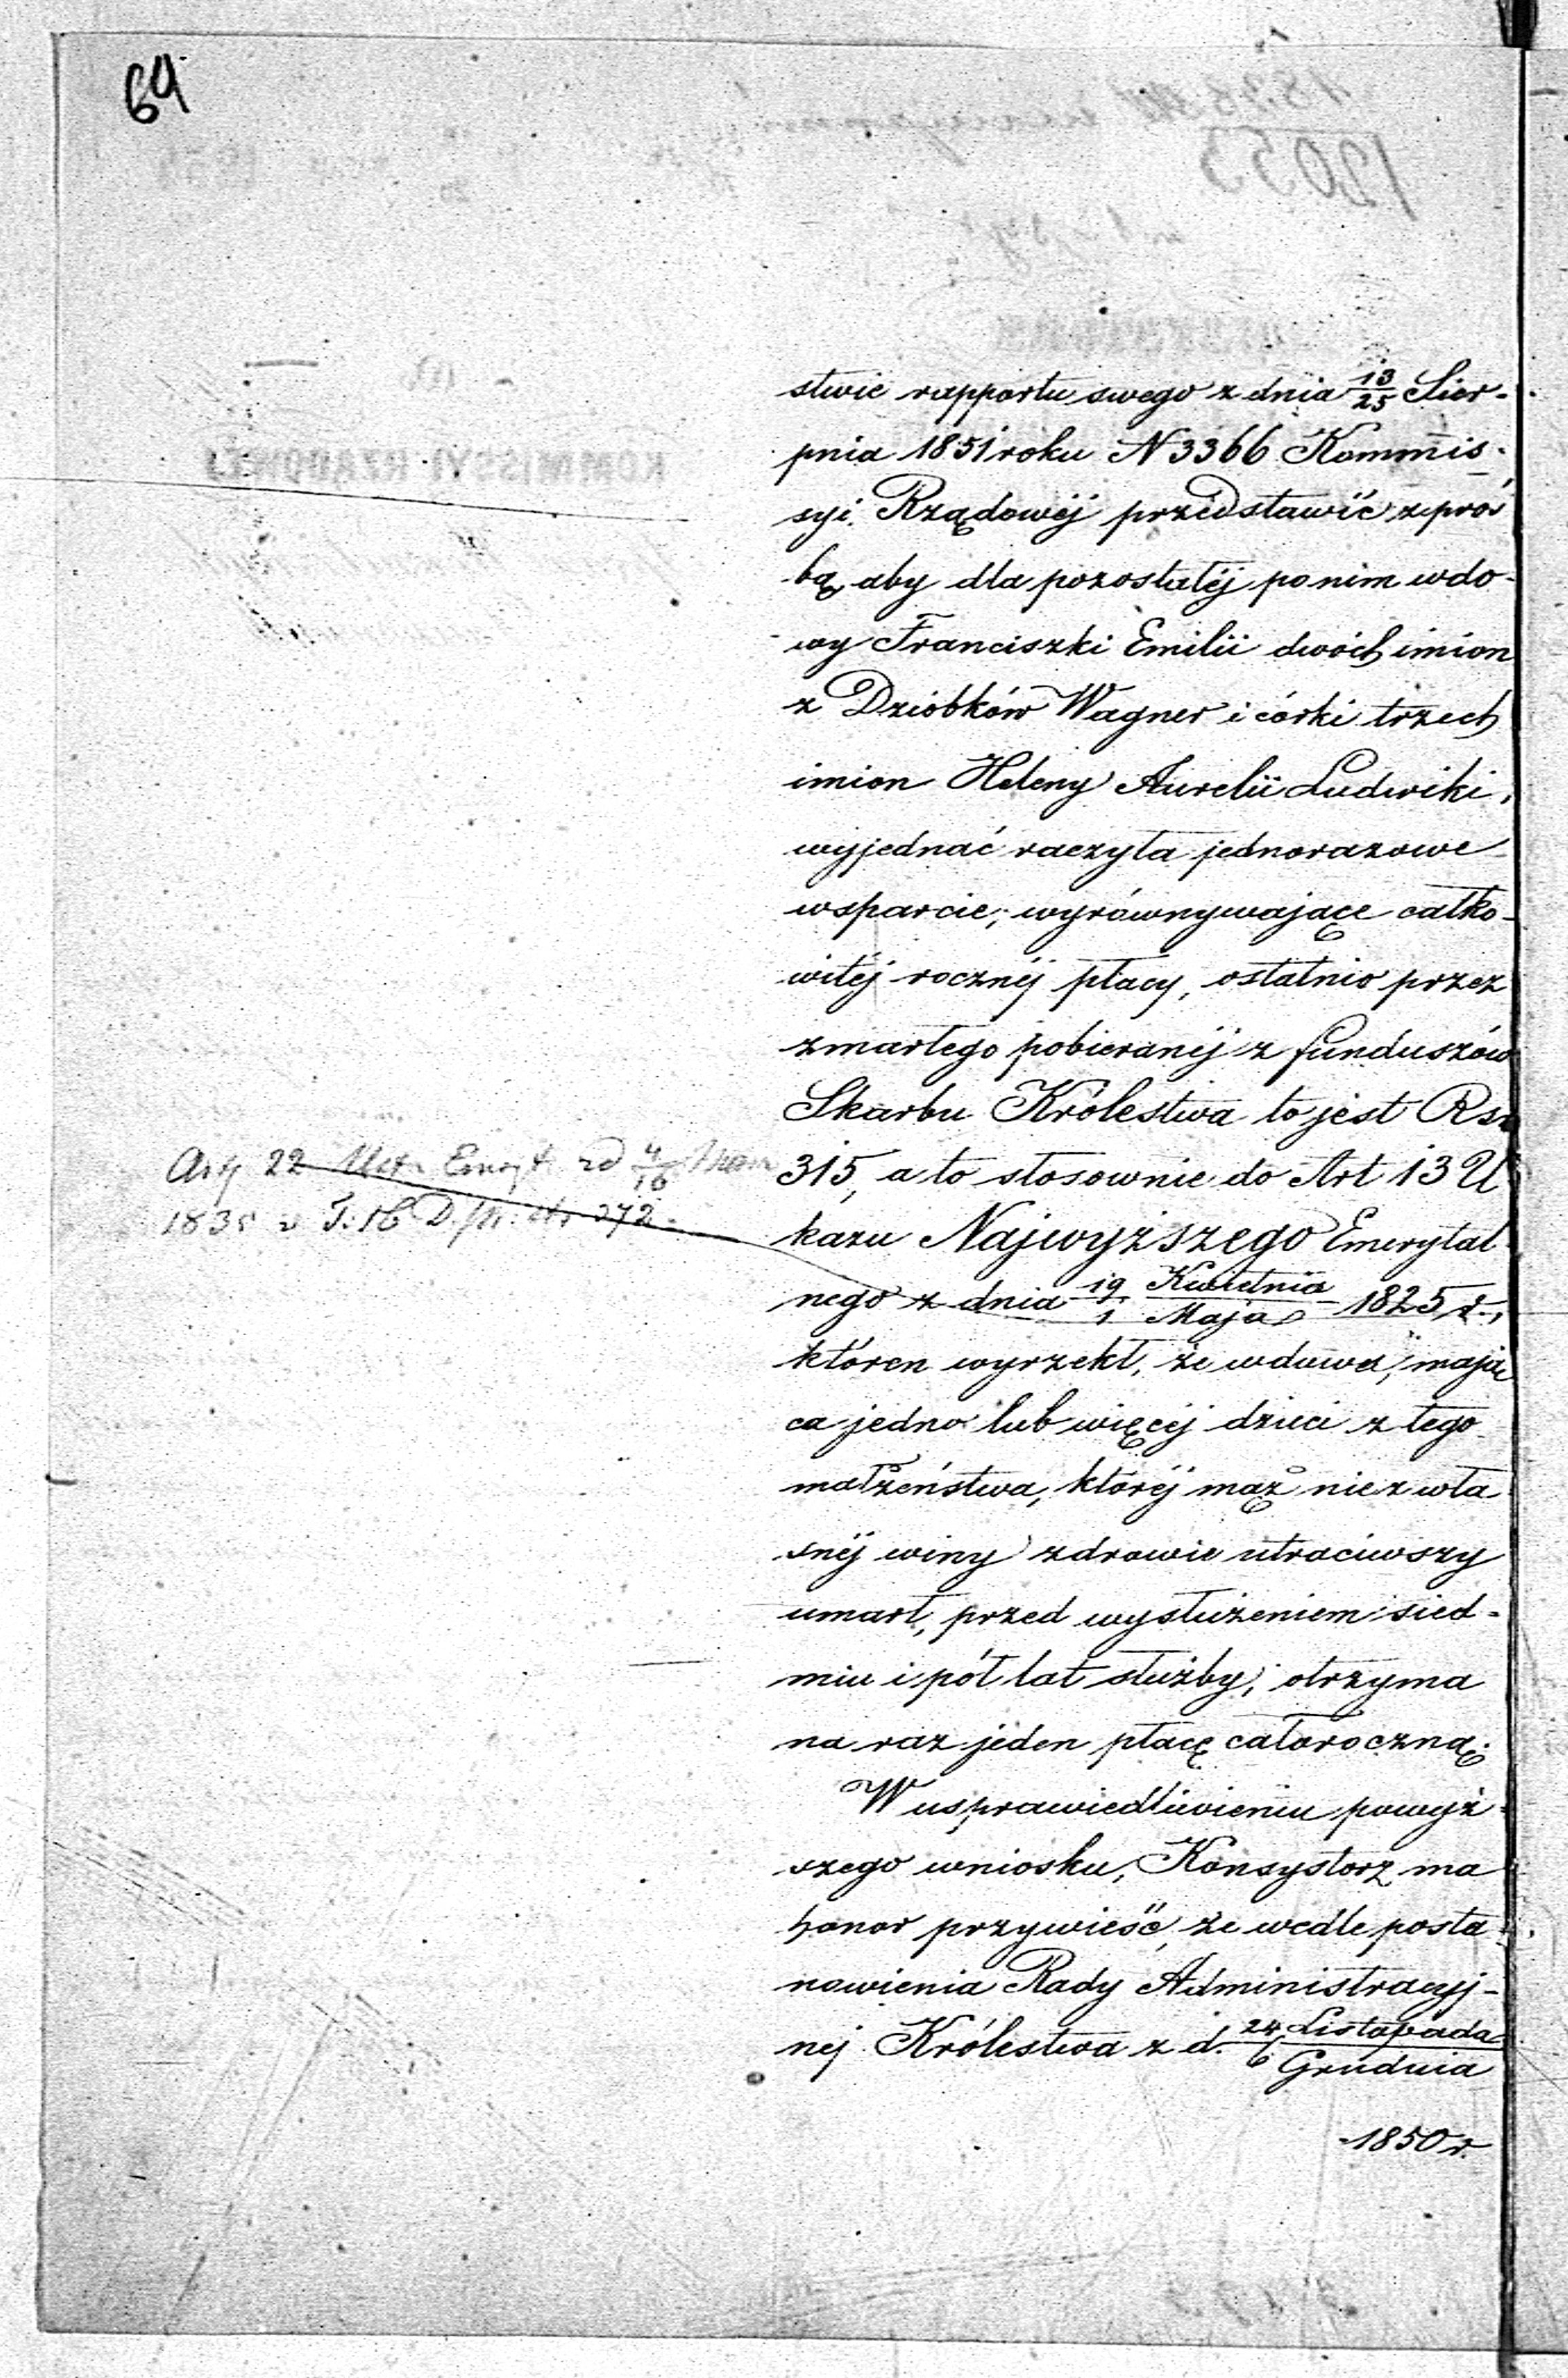 64
stwie rapportu swego z dnia 13/25 Sier-
pnia 1851 roku N 3366 Kommis-
syi Rządowéj przedstawić z proś
bą aby dla pozostałéj po nim wdo-
wy Franciszki Emilii dwóch imion
z Dziobków Wagner i córki trzech
imion Heleny Aurelii Ludwiki,
wyjednać raczyła jednorazowe
wsparcie, wyrównywające całko-
witéj rocznéj płacy, ostatnio przez
zmarłego pobieranéj z funduszów
Skarbu Królestwa to jest Rsr
315, a to stosownie do Art 13 U
kazu Najwyższego Emerytal
nego z dnia 19 Kwietnia/1 Maja 1825 r.,
któren wyrzekł, że wdowa, mają
ca jedno lub więcéj dzieci z tego
małżeństwa, któréj mąż nie z wła
snéj winy zdrowie utraciwszy
umarł, przed wysłużeniem sied-
miu i pół lat służby, otrzyma
na raz jeden płacę całoroczną.
W usprawiedliwieniu powyż-
szego wniosku, Konsystorz ma
honor przywieść, że wedle posta-
nowienia Rady Administracyj-
nej Królestwa z d. 24 Listopada/6 Grudnia
1850 r.
Art 22
1835 T. 16 D. pr. str 272